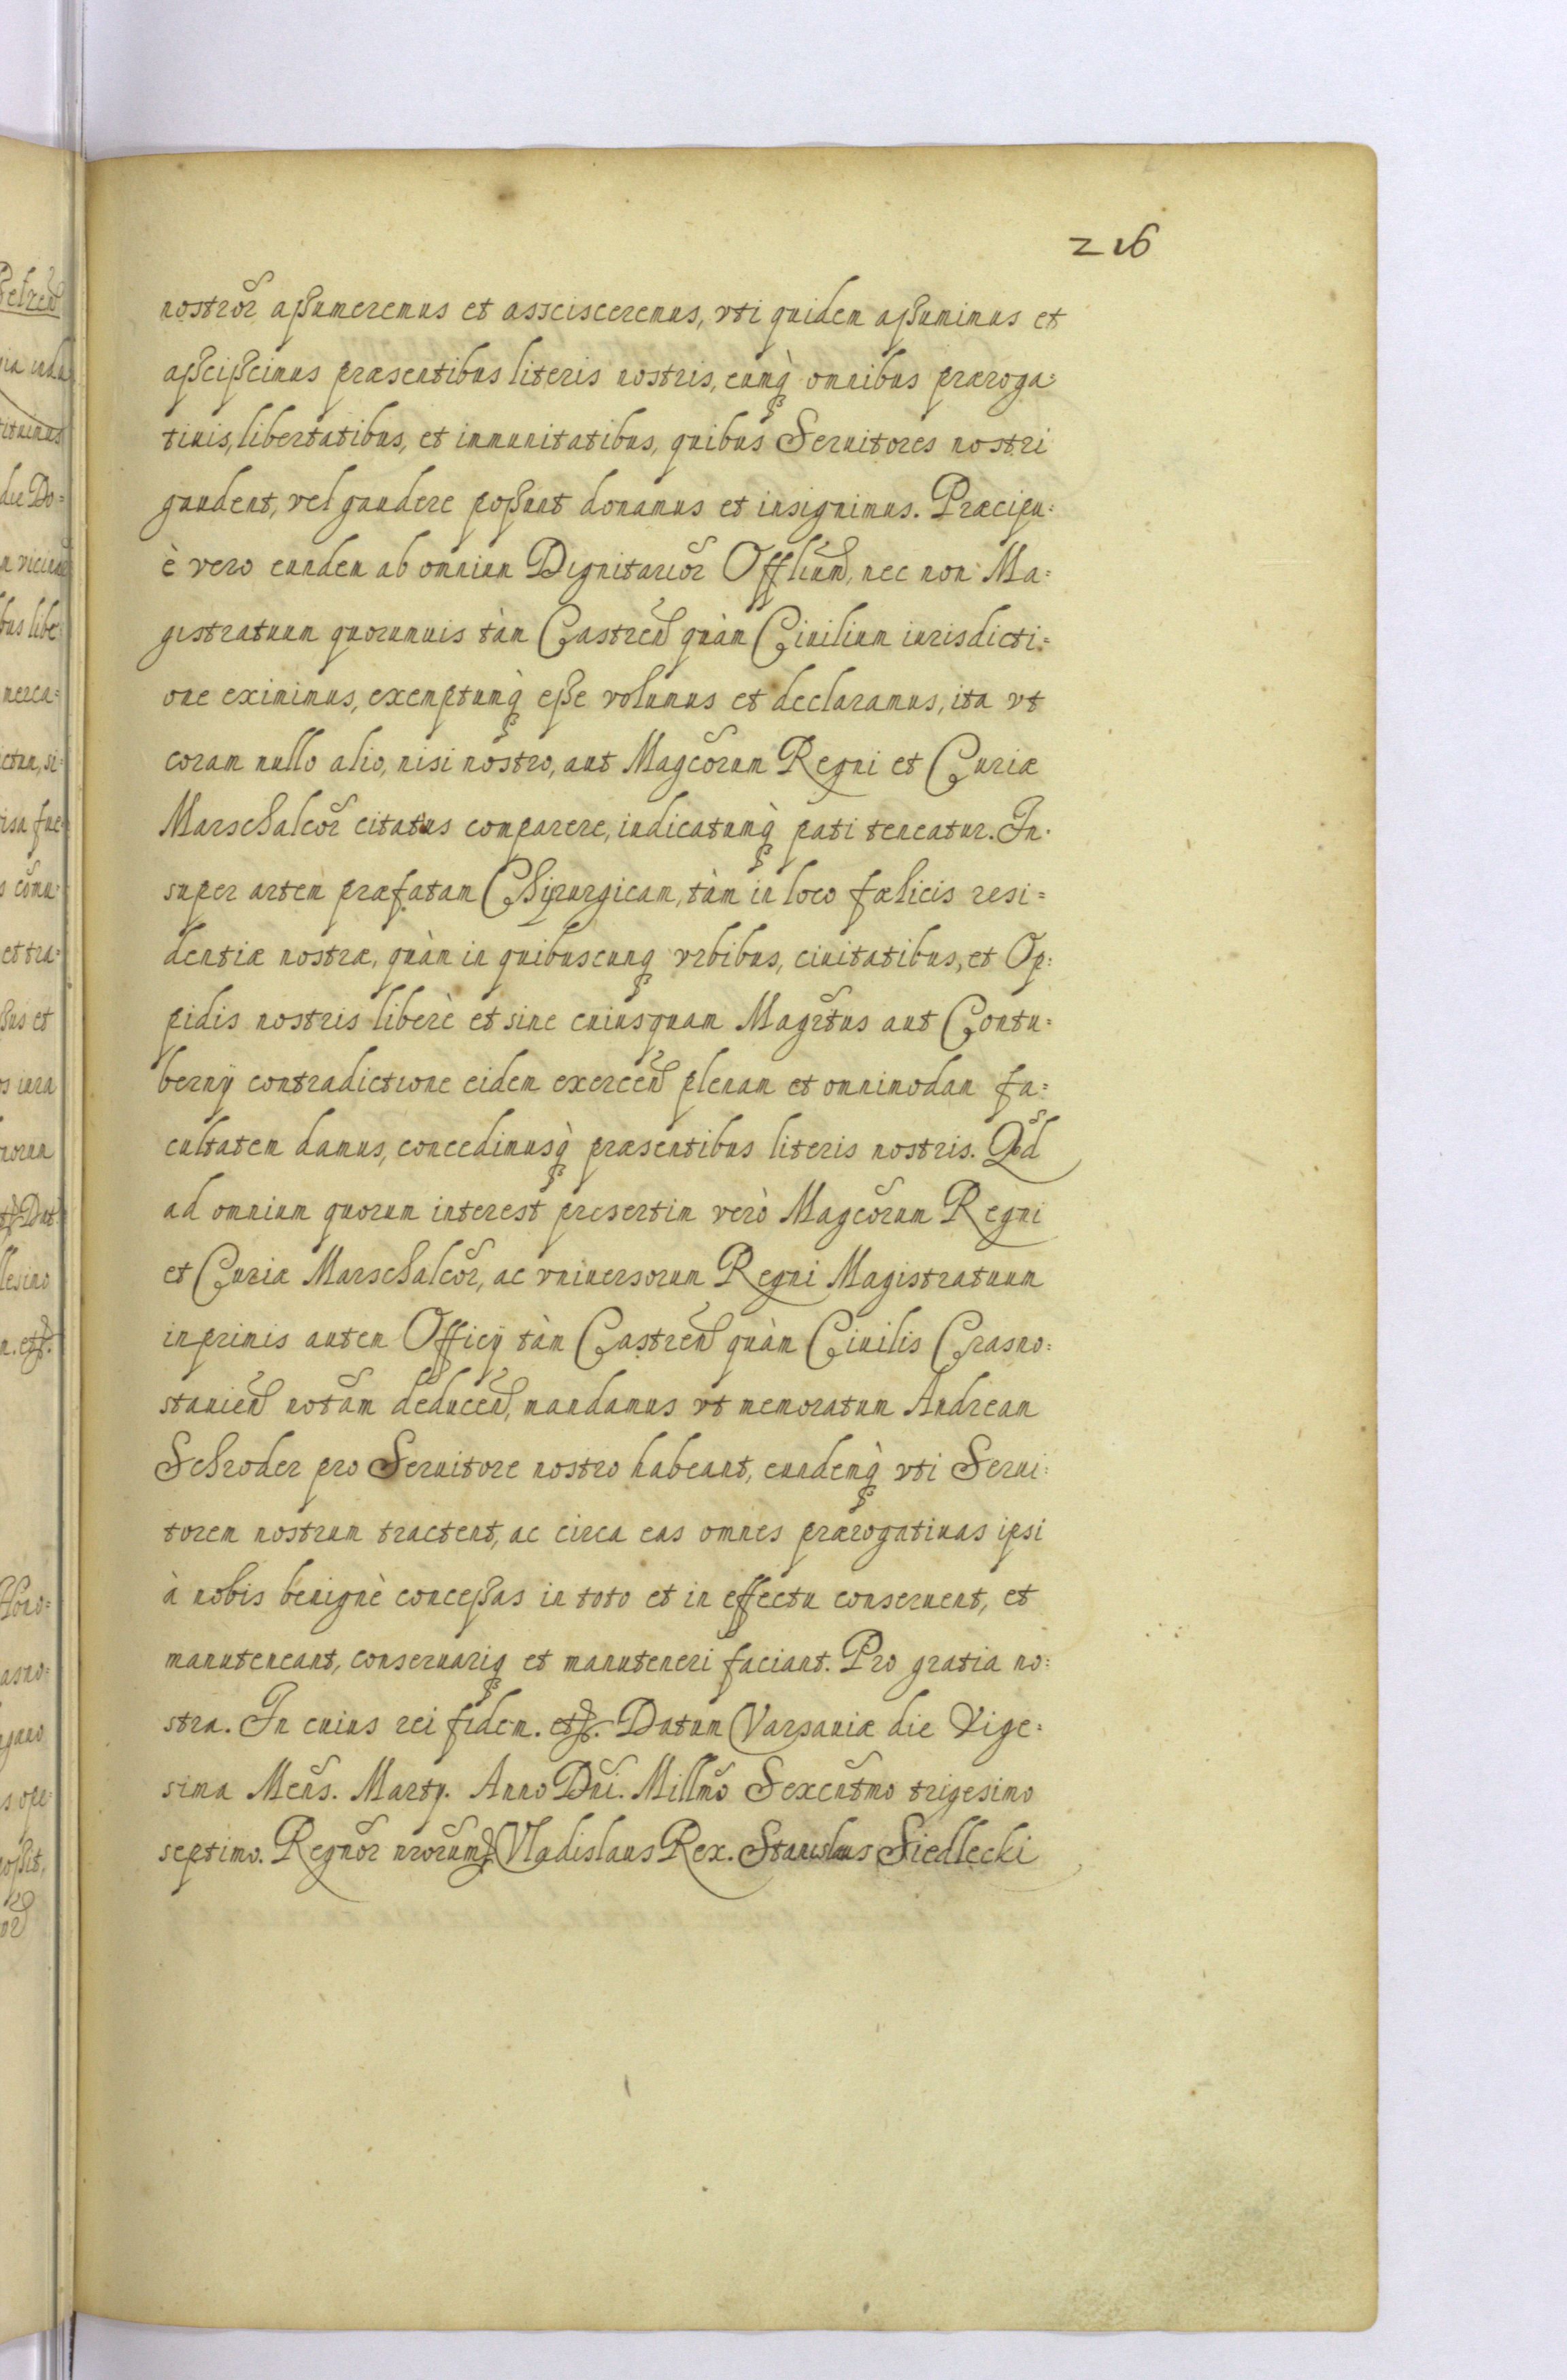 216
nostror̃ aßumeremus et asscisceremus, vti quidem aßumimus et
aßcißcimus præsentibus literis nostris, eumq̀ omnibus præroga=
tiuis, libertatibus, et immunitatibus, quibus Seruitores nostri
gaudent, vel gaudere poßunt donamus et insignimus. Præcipu=
è vero eundem ab omnium Dignitarior̃ Offlium̃, nec non Ma=
gistratuum quorumuis tàm Castren̄ quàm Ciuilium iurisdicti=
one eximimus, exemptumq̀ eße volumus et declaramus, ita vt
coram nullo alio, nisi nostro, aut Magcõrum Regni et Curiæ
Marschalcor̃ citatus comparere, iudicatumq̀ pati teneatur. In=
super artem præfatam Chirurgicam, tàm in loco fælicis resi=
dentiæ nostræ, quàm in quibuscunq vrbibus, ciuitatibus, et Op=
pidis nostris liberè et sine cuiusquam Magr̃tus aut Contu=
bernÿ contradictione eidem exercen̄ plenam et omnimodam fa=
cultatem damus, concedimusq̀ præsentibus literis nostris. Qõd
ad omnium quorum interest presertim verò Magcõrum Regni
et Curiæ Marschalcor̃, ac vniuersorum Regni Magistratuum
inprimis autem Officÿ tàm Castren̄ quàm Ciuilis Crasno=
stauien̄ notãm deducen̄, mandamus vt memoratum Andream
Schroder pro Seruitore nostro habeant, eundemq̀ vti Serui=
torem nostrum tractent, ac circa eas omnes prærogatiuas ipsi
à nobis benignè conceßas in toto et in effectu conseruent, et
manuteneant, conseruariq et manuteneri faciant. Pro gratia no=
stra. In cuius rei fidem. etc. Datum Varsauiæ die Vige=
sima Men̄s. Martÿ. Anno Dn̄i. Millm̃o Sexcent̃mo trigesimo
septimo. Regnor̃ nrõrum etc. Vladislaus Rex. Stanislaus Siedlecki